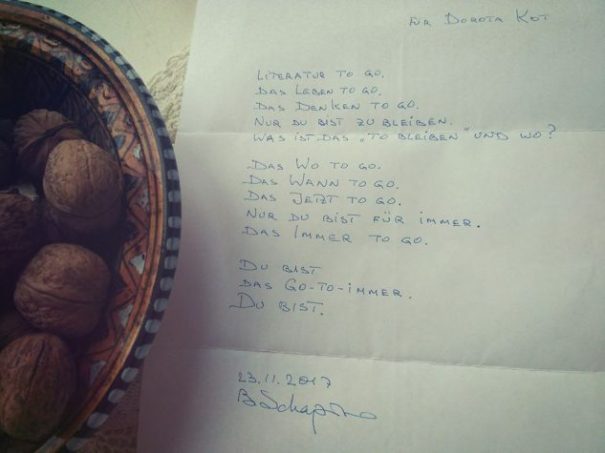 FÜR DOROTA KOT
LITERATUR TO GO.
DAS LEBEN TO GO.
DAS DENKEN TO GO.
NUR DU BIST ZU BLEIBEN.
WAS IST DAS „TO BLEIBEN" UND WO?
DAS WO TO GO.
DAS WANN TO GO.
DAS JETZT TO GO.
NUR DU BIST FÜR IMMER.
DAS IMMER TO GO.
DU BIST
DAS GO-TO-IMMER.
DU BIST.
23.11.2017
BSchapiro